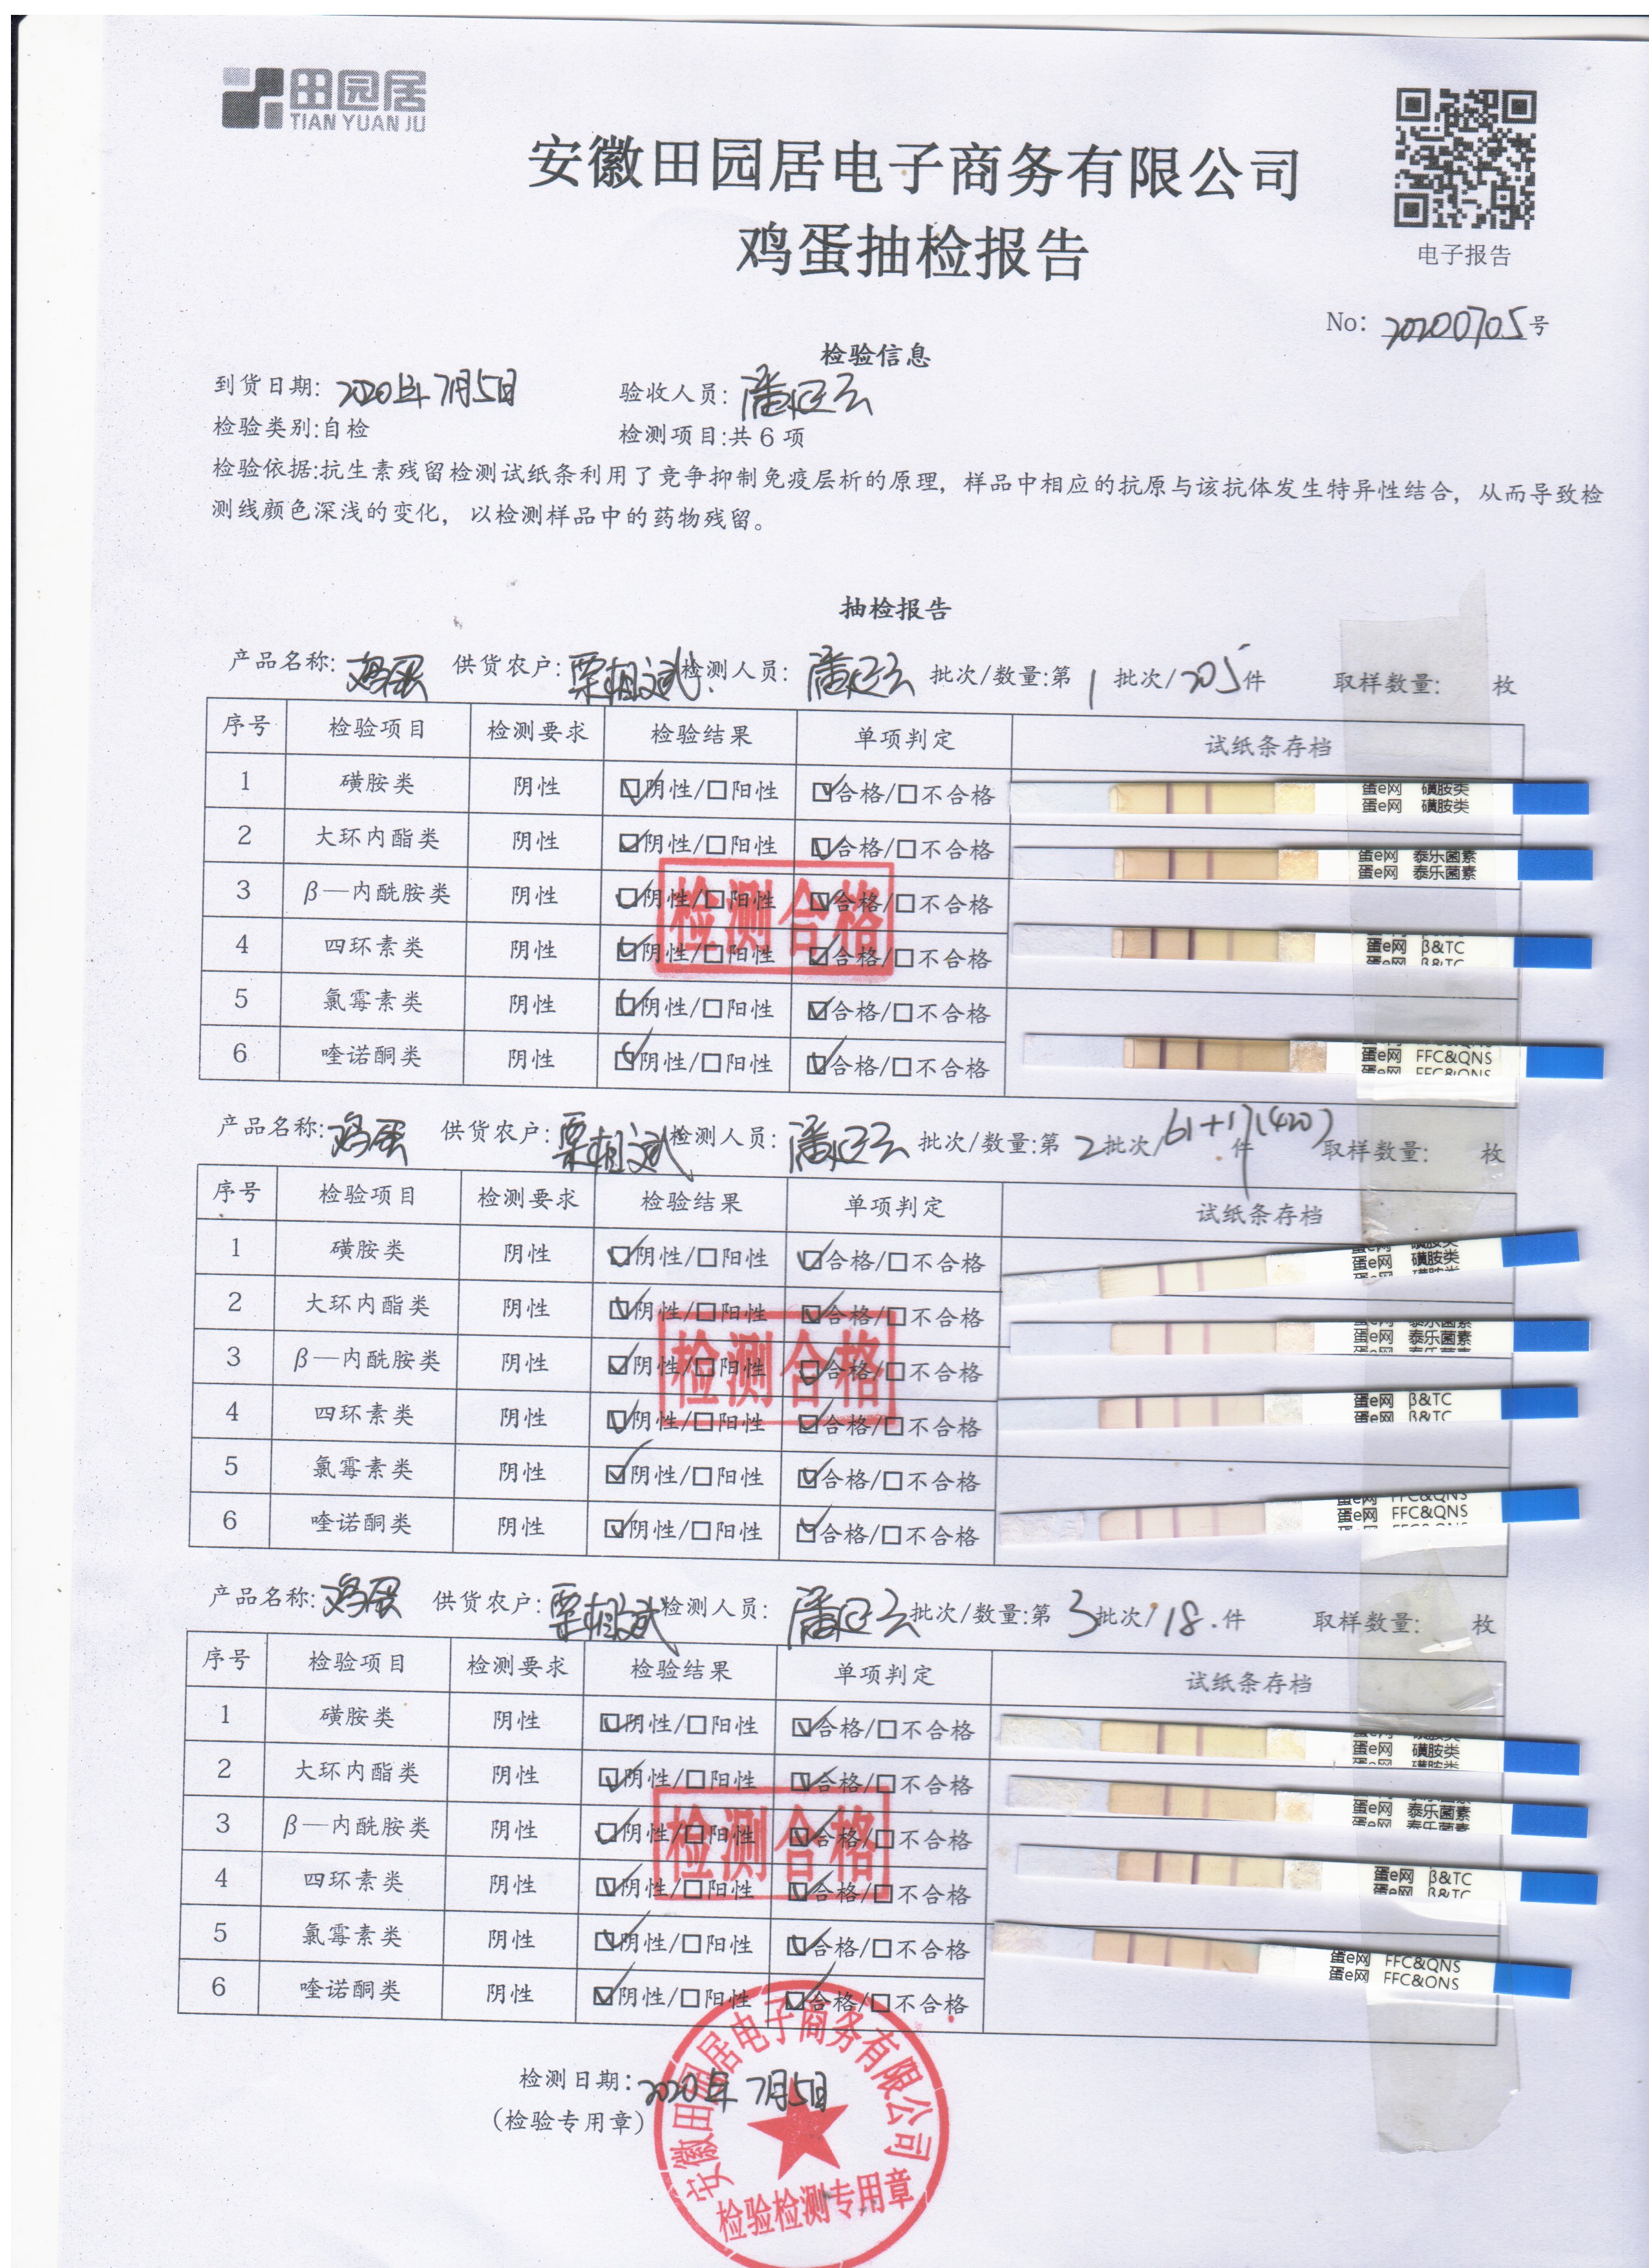 田园居
TIAN YUAN JU
安徽田园居电子商务有限公司
鸡蛋抽检报告
电子报告
No: 20200705号
检验信息
到货日期: 2020年7月5日 验收人员:潘
检验类别:自检 检测项目:共6项
检验依据:抗生素残留检测试纸条利用了竞争抑制免疫层析的原理，样品中相应的抗原与该抗体发生特异性结合，从而导致检
测线颜色深浅的变化，以检测样品中的药物残留。
抽检报告
产品名称:鸡蛋 供货农户:栗 检测人员:潘 批次/数量:第1批次/205件 取样数量: 枚
序号 检验项目 检测要求 检验结果 单项判定 试纸条存档
1 磺胺类 阴性 ☑阴性/□阳性 ☑合格/□不合格 蛋e网 磺胺类
蛋e网 磺胺类
2 大环内酯类 阴性 ☑阴性/□阳性 ☑合格/□不合格 蛋e网 泰乐菌素
蛋e网 泰乐菌素
3 β—内酰胺类 阴性 ☑阴性/□阳性 ☑合格/□不合格
检测合格
4 四环素类 阴性 ☑阴性/□阳性 ☑合格/□不合格 蛋e网 β&TC
蛋e网 β&TC
5 氯霉素类 阴性 ☑阴性/□阳性 ☑合格/□不合格
6 喹诺酮类 阴性 ☑阴性/□阳性 ☑合格/□不合格 蛋e网 FFC&QNS
蛋e网 FFC&QNS
产品名称:鸡蛋 供货农户:栗 检测人员:潘 批次/数量:第2批次/61+1(420)件 取样数量: 枚
序号 检验项目 检测要求 检验结果 单项判定 试纸条存档
1 磺胺类 阴性 ☑阴性/□阳性 ☑合格/□不合格 蛋e网 磺胺类
2 大环内酯类 阴性 ☑阴性/□阳性 ☑合格/□不合格 蛋e网 泰乐菌素
3 β—内酰胺类 阴性 ☑阴性/□阳性 ☑合格/□不合格
检测合格
4 四环素类 阴性 ☑阴性/□阳性 ☑合格/□不合格 蛋e网 β&TC
蛋e网 β&TC
5 氯霉素类 阴性 ☑阴性/□阳性 ☑合格/□不合格
6 喹诺酮类 阴性 ☑阴性/□阳性 ☑合格/□不合格 蛋e网 FFC&QNS
产品名称:鸡蛋 供货农户:栗 检测人员:潘 批次/数量:第3批次/18.件 取样数量: 枚
序号 检验项目 检测要求 检验结果 单项判定 试纸条存档
1 磺胺类 阴性 ☑阴性/□阳性 ☑合格/□不合格 蛋e网 磺胺类
2 大环内酯类 阴性 ☑阴性/□阳性 ☑合格/□不合格 蛋e网 泰乐菌素
3 β—内酰胺类 阴性 ☑阴性/□阳性 ☑合格/□不合格
检测合格
4 四环素类 阴性 ☑阴性/□阳性 ☑合格/□不合格 蛋e网 β&TC
蛋e网 β&TC
5 氯霉素类 阴性 ☑阴性/□阳性 ☑合格/□不合格 蛋e网 FFC&QNS
蛋e网 FFC&QNS
6 喹诺酮类 阴性 ☑阴性/□阳性 ☑合格/□不合格
检测日期:2020年7月5日
(检验专用章)
安徽田园居电子商务有限公司
检验检测专用章